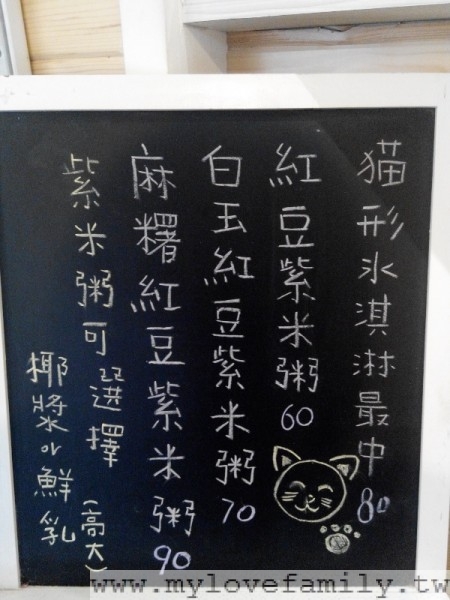 猫形氷淇淋最中80
紅豆紫米粥60
白玉紅豆紫米粥70
麻糬紅豆紫米粥90
紫米粥可選擇(高大)
椰漿or鮮乳
www.mylovefamily.tw